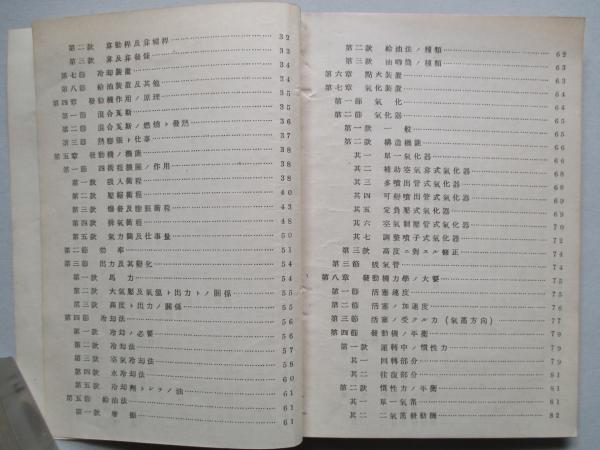 第二款 弁動桿及弁槓桿 32
第三款 弁及弁發條 34
第七節 冷却装置 34
第八節 給油装置及其他 34
第四章 發動機作用ノ原理 35
第一節 混合瓦斯 35
第二節 混合瓦斯ノ燃燒ト發熱 36
第三節 熱膨脹ト仕事 37
第五章 發動機ノ機能 38
第一節 四衝程機關ノ作用 38
第一款 吸入衝程 38
第二款 壓縮衝程 40
第三款 爆發及膨脹衝程 43
第四款 排氣衝程 48
第五款 氣力圖及仕事量 50
第二節 効率 51
第三節 出力及其變化 54
第一款 馬力 54
第二款 大氣壓及氣溫ト出力トノ關係 55
第三款 高度ト出力ノ關係 55
第四節 冷却法 56
第一款 冷却ノ必要 56
第二款 冷却法 57
第三款 空氣冷却法 58
第四款 水冷却法 60
第五款 冷却劑トシテノ油 61
第五節 給油法 61
第一款 摩擦 61
第二款 給油法ノ種類 62
第三款 油喞筒ノ種類 63
第六章 點火装置 64
第七章 氣化装置 64
第一節 氣化 64
第二節 氣化器 65
第一款 一般 65
第二款 構造機能 66
其一 單一氣化器 66
其二 補助空氣弁式氣化器 68
其三 多噴出管式氣化器 68
其四 可變噴出管式氣化器 68
其五 定負壓式氣化器 69
其六 空氣制壓管式氣化器 70
其七 調整噴子式氣化器 72
第三款 高度ニ對スル修正 74
第三節 吸氣管 74
第八章 發動機力學ノ大要 75
第一節 活塞速度 75
第二節 活塞ノ加速度 76
第三節 活塞ノ受クル力(氣筩方向) 77
第四節 發動機ノ平衡 79
第一款 運轉中ノ慣性力 79
其一 回轉部分 79
其二 往復部分 81
第二款 慣性力ノ平衡 81
其一 單一氣筩 81
其二 二氣筩發動機 82